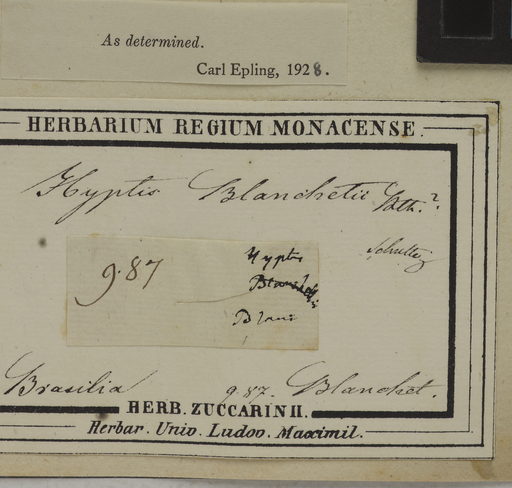 As determined.
Carl Epling, 1928.
HERBARIUM REGIUM MONACENSE.
Hyptis Blanchetii Bth.?
9.87
Hyptis
Blanchetii
Blanc
Brasilia 987. Blanchet.
HERB. ZUCCARINII.
Herbar. Univ. Ludov. Maximil.